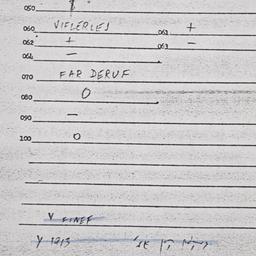 050
060 VIFLERLEJ 061 +
062 + 063 -
064 -
070 FAR DERUF
080 O
090 -
100 O
Y FINEF
Y 1213